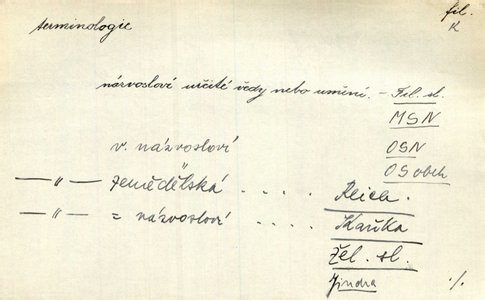 fil.
terminologie K
názvosloví určité vědy nebo umění. – Fil. sl.
MSN
v. názvosloví OSN
OSobch
—„— zemědělská . . . . Reich.
—„— = názvosloví . . . . Kaňka
Žel. sl.
Jindra ·/.